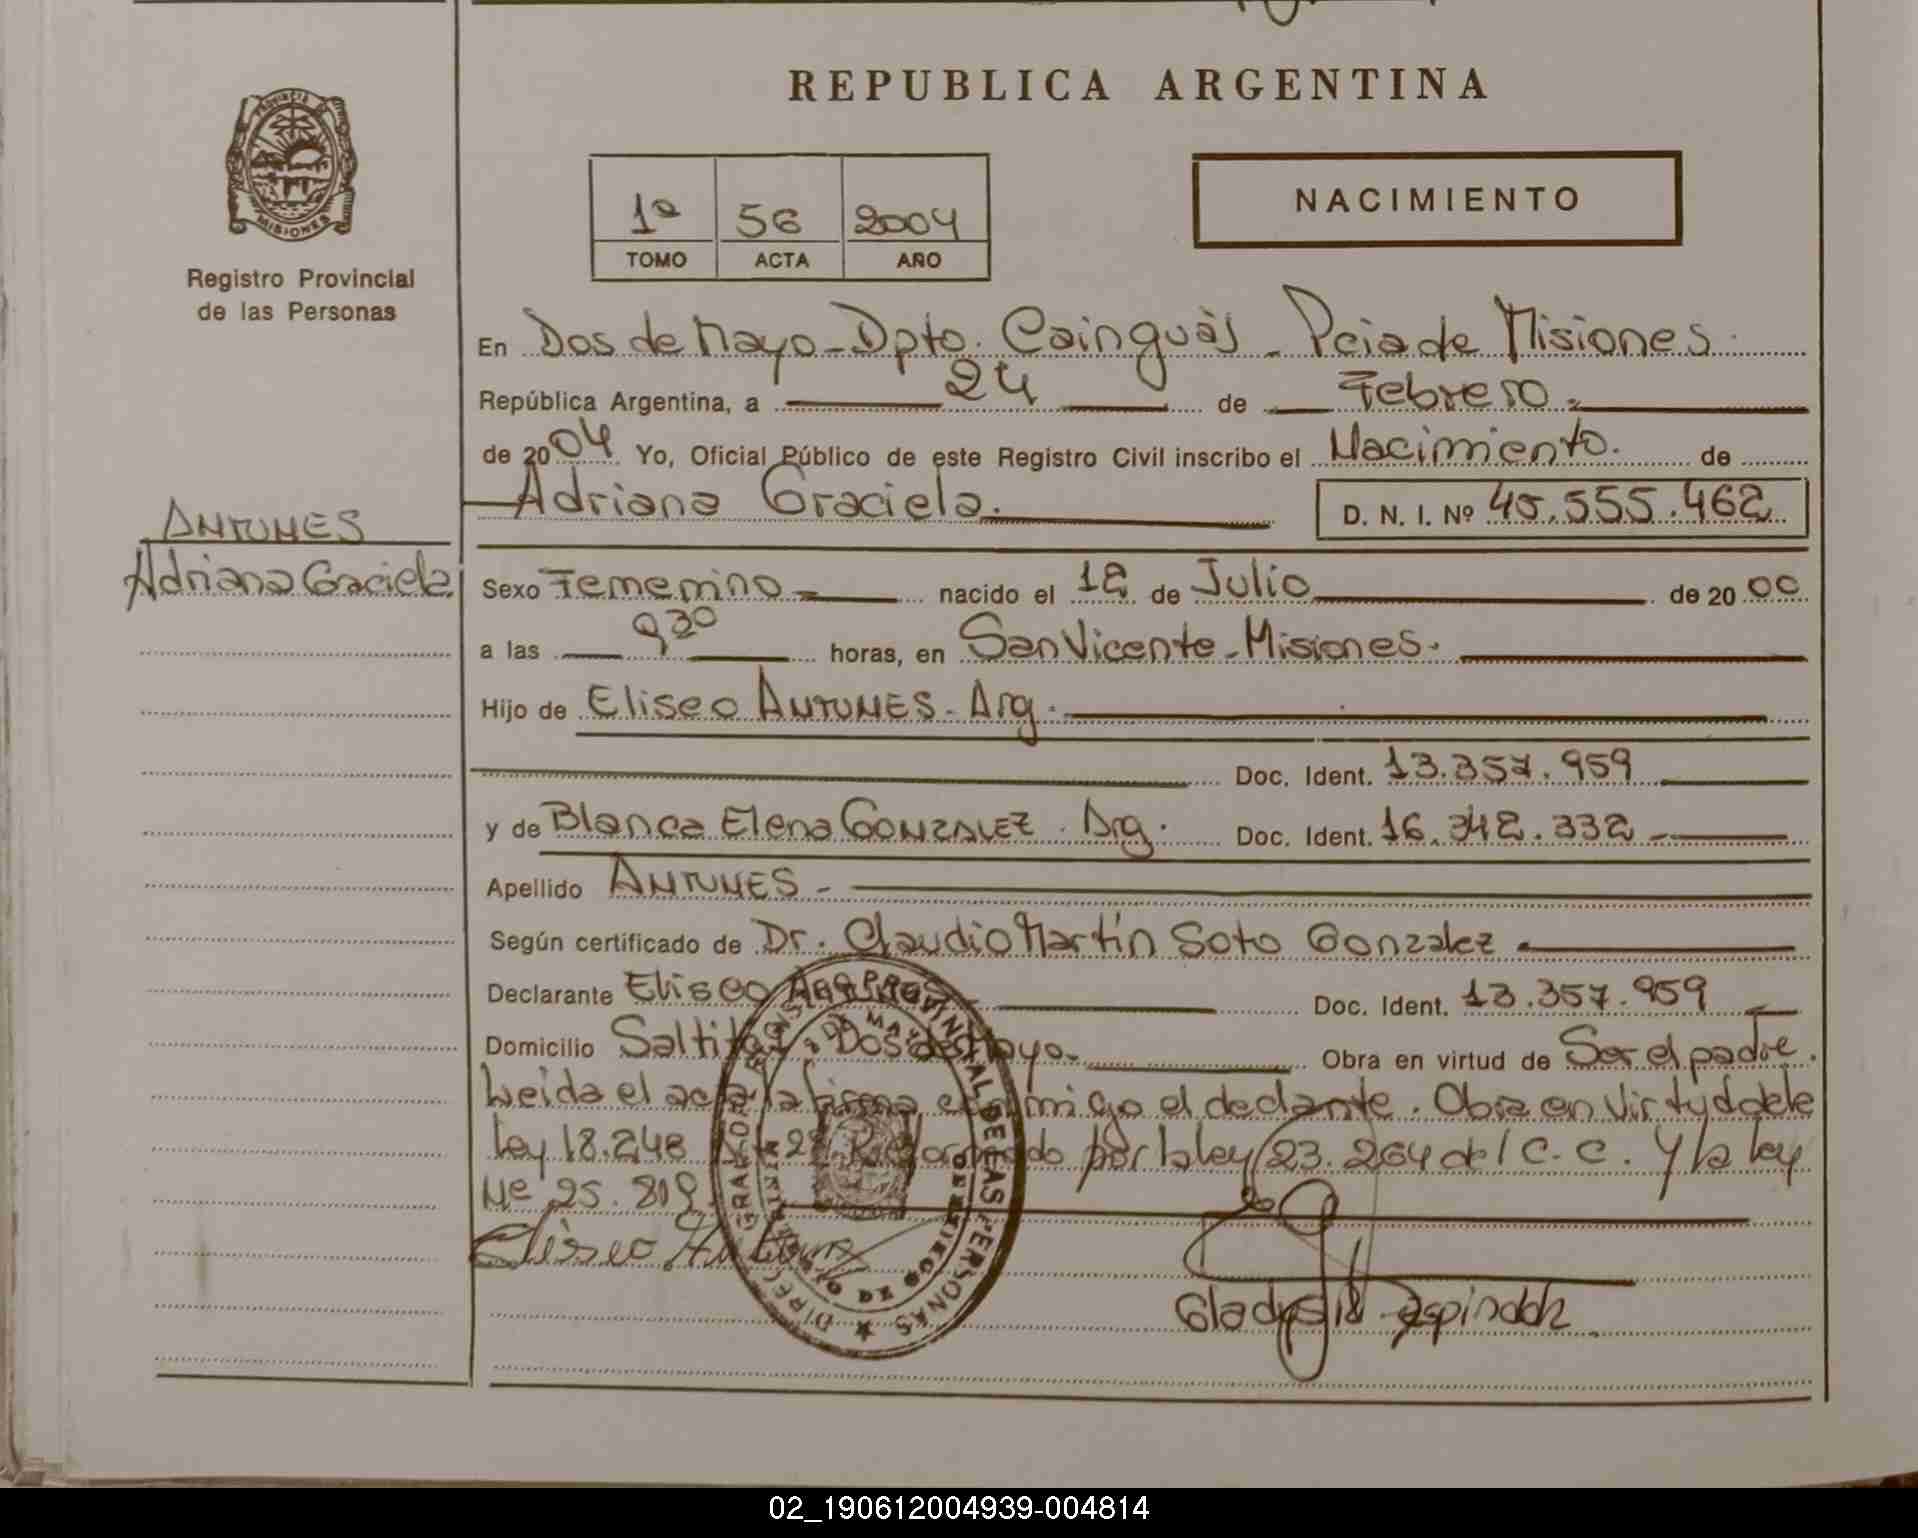 REPUBLICA ARGENTINA
PROVINCIA DE
MISIONES
Registro Provincial
de las Personas
1º 56 2004
TOMO ACTA AÑO
NACIMIENTO
En Dos de Mayo - Dpto. Cainguás - Pcia de Misiones.
República Argentina, a 24 de Febrero.
de 2004 Yo, Oficial Público de este Registro Civil inscribo el Nacimiento. de
Adriana Graciela.
D. N. I. Nº 45.555.462
ANTUNES
Adriana Graciela
Sexo Femenino nacido el 12 de Julio de 2000
a las 9 30 horas, en San Vicente - Misiones.
Hijo de Eliseo ANTUNES - Arg.
Doc. Ident. 13.357.959
y de Blanca Elena GONZALEZ. Arg. Doc. Ident. 16.342.332
Apellido ANTUNES -
Según certificado de Dr. Claudio Martín Soto Gonzalez
Declarante Eliseo Doc. Ident. 13.357.959
Domicilio Dos de Mayo. Obra en virtud de Ser el padre.
Leida el acta la firma conmigo el
Ley 18.248 por la ley 23.264 del C. C. y la ley
Nº 25.819.
Eliseo
DIRECCION GRAL DE REGISTRO PROVINCIAL DE LAS PERSONAS
DOS DE MAYO
02_190612004939-004814